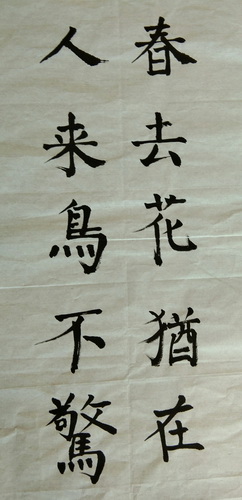 春去花猶在
人来鳥不驚